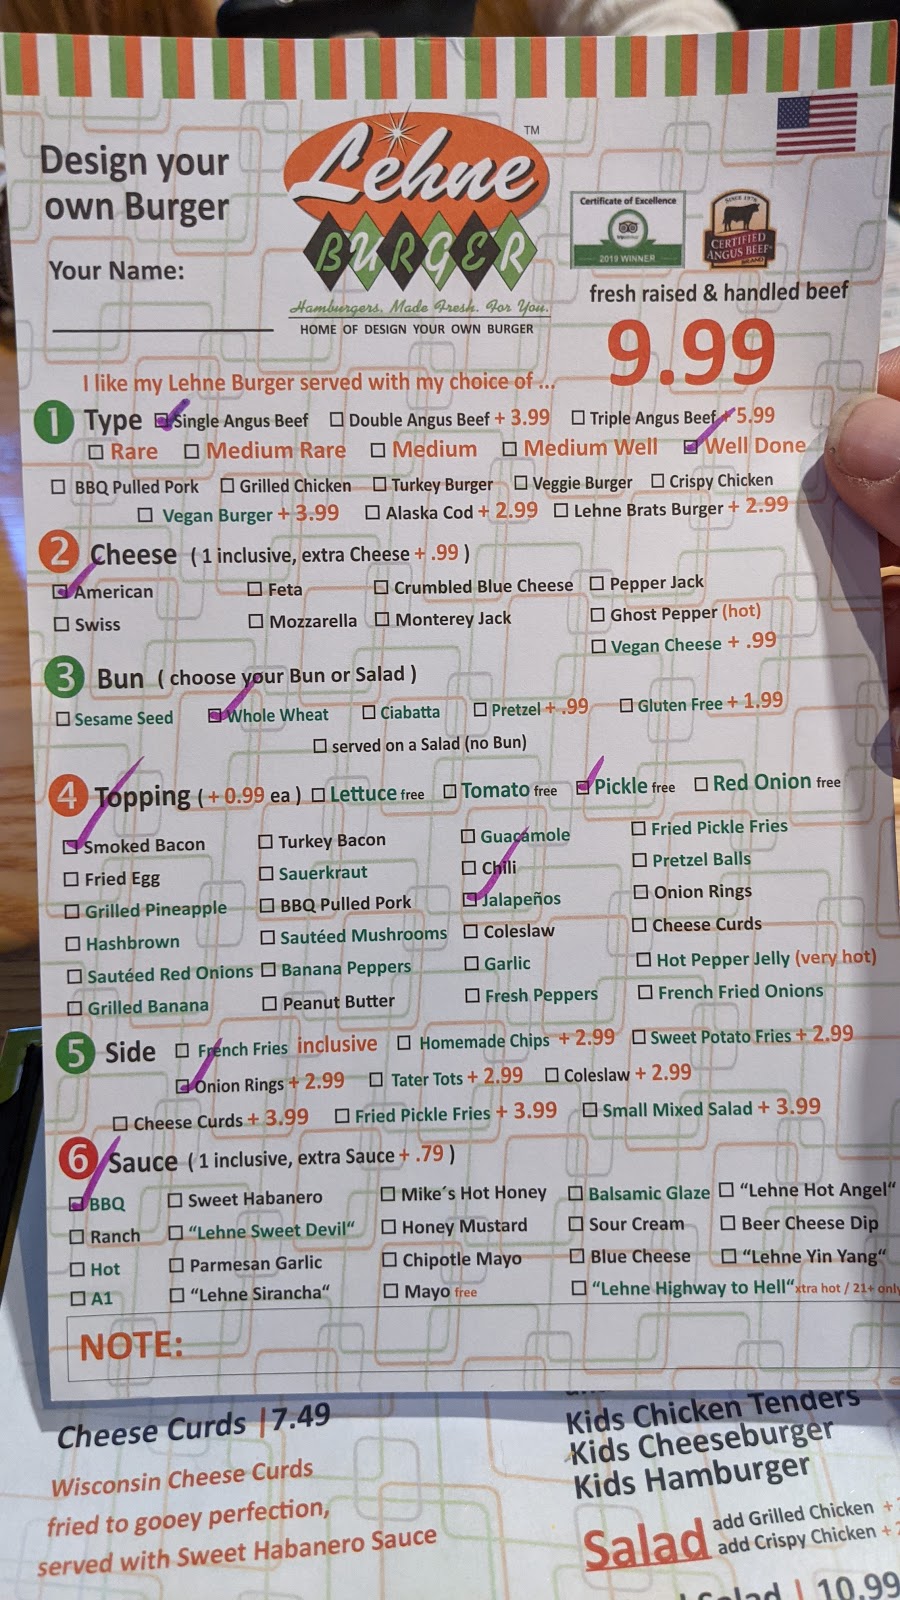 Design your
own Burger
Your Name:
Lehne TM
BURGER
Hamburgers. Made Fresh. For You.
HOME OF DESIGN YOUR OWN BURGER
Certificate of Excellence
2019 WINNER
SINCE 1978
CERTIFIED
ANGUS BEEF
BRAND
fresh raised & handled beef
9.99
I like my Lehne Burger served with my choice of ...
1 Type Single Angus Beef Double Angus Beef + 3.99 Triple Angus Beef + 5.99
Rare Medium Rare Medium Medium Well Well Done
BBQ Pulled Pork Grilled Chicken Turkey Burger Veggie Burger Crispy Chicken
Vegan Burger + 3.99 Alaska Cod + 2.99 Lehne Brats Burger + 2.99
2 Cheese ( 1 inclusive, extra Cheese + .99 )
American Feta Crumbled Blue Cheese Pepper Jack
Swiss Mozzarella Monterey Jack Ghost Pepper (hot)
Vegan Cheese + .99
3 Bun ( choose your Bun or Salad )
Sesame Seed Whole Wheat Ciabatta Pretzel + .99 Gluten Free + 1.99
served on a Salad (no Bun)
4 Topping ( + 0.99 ea ) Lettuce free Tomato free Pickle free Red Onion free
Smoked Bacon Turkey Bacon Guacamole Fried Pickle Fries
Fried Egg Sauerkraut Chili Pretzel Balls
Grilled Pineapple BBQ Pulled Pork Jalapeños Onion Rings
Hashbrown Sautéed Mushrooms Coleslaw Cheese Curds
Sautéed Red Onions Banana Peppers Garlic Hot Pepper Jelly (very hot)
Grilled Banana Peanut Butter Fresh Peppers French Fried Onions
5 Side French Fries inclusive Homemade Chips + 2.99 Sweet Potato Fries + 2.99
Onion Rings + 2.99 Tater Tots + 2.99 Coleslaw + 2.99
Cheese Curds + 3.99 Fried Pickle Fries + 3.99 Small Mixed Salad + 3.99
6 Sauce ( 1 inclusive, extra Sauce + .79 )
BBQ Sweet Habanero Mike´s Hot Honey Balsamic Glaze "Lehne Hot Angel"
Ranch "Lehne Sweet Devil" Honey Mustard Sour Cream Beer Cheese Dip
Hot Parmesan Garlic Chipotle Mayo Blue Cheese "Lehne Yin Yang"
A1 "Lehne Sirancha" Mayo free "Lehne Highway to Hell" xtra hot / 21+ only
NOTE:
Cheese Curds | 7.49
Wisconsin Cheese Curds
fried to gooey perfection,
served with Sweet Habanero Sauce
Kids Chicken Tenders
Kids Cheeseburger
Kids Hamburger
Salad add Grilled Chicken +
add Crispy Chicken +
Salad | 10.99